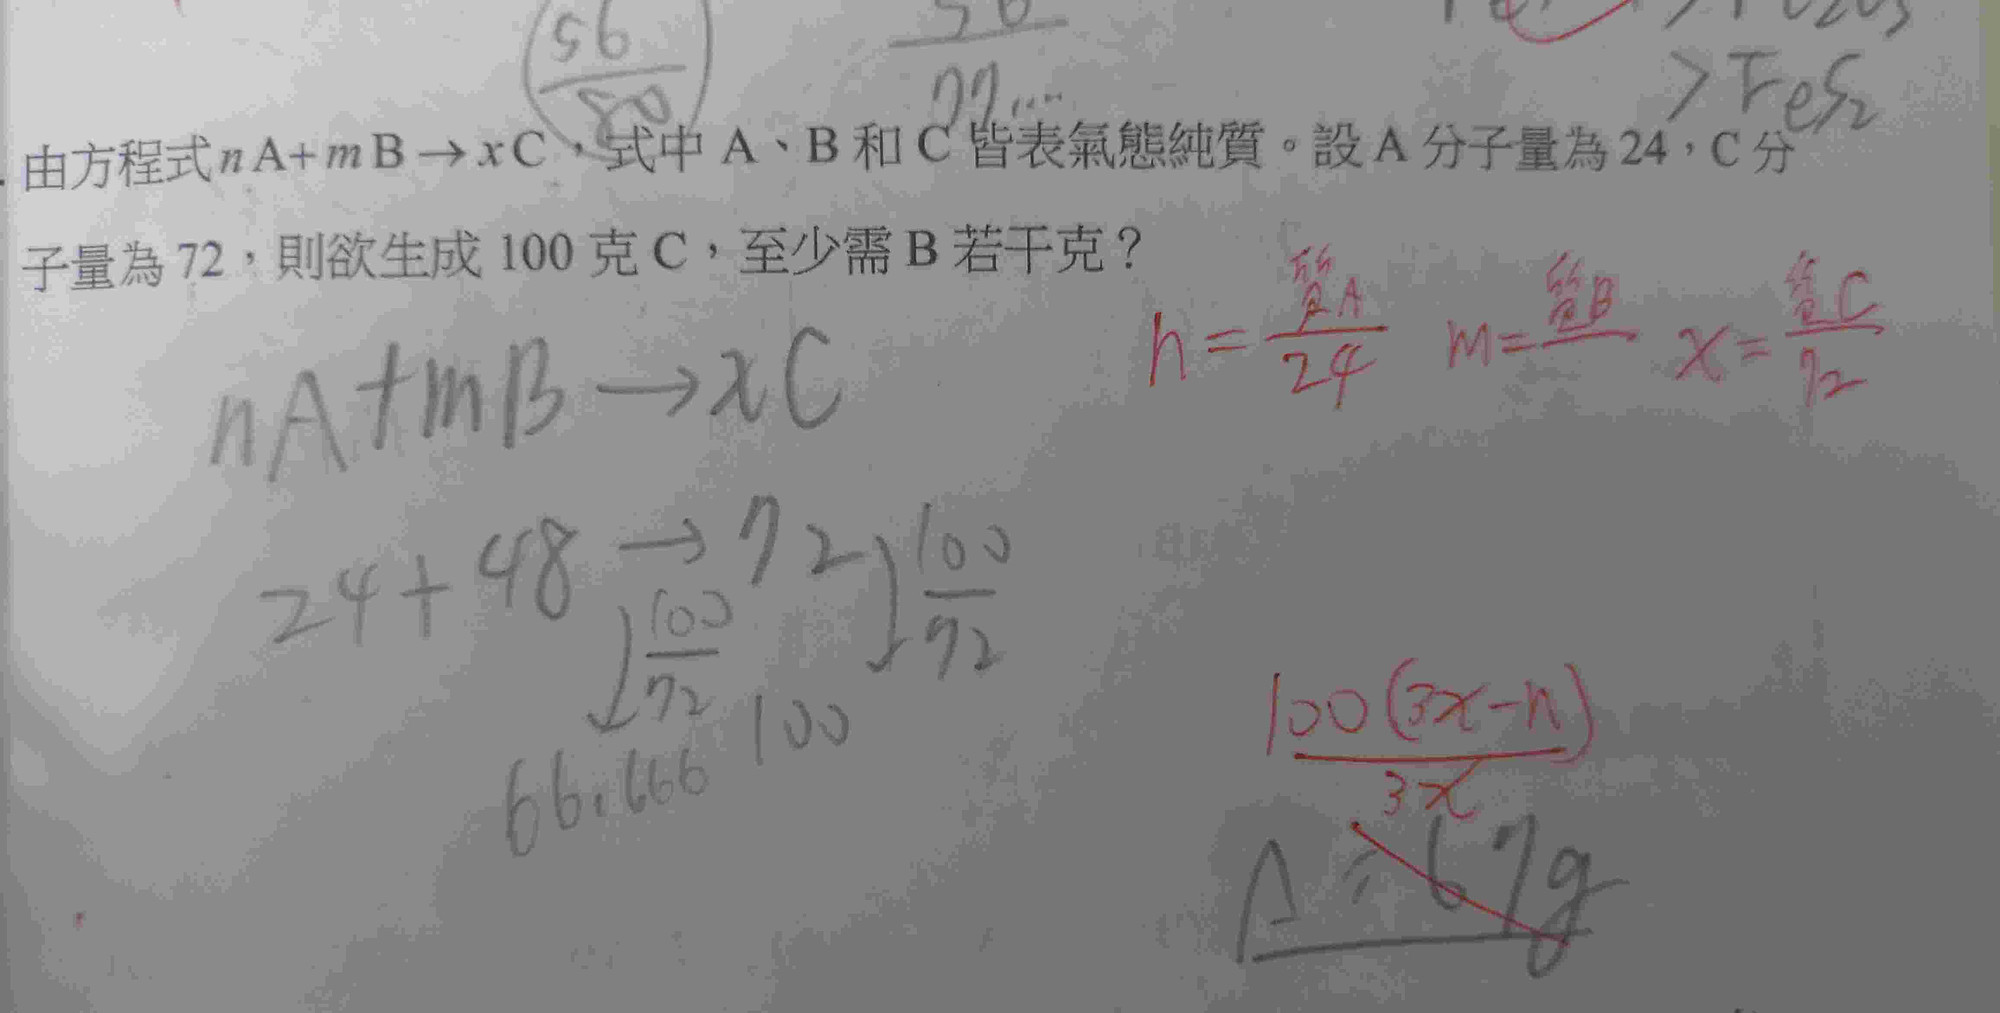 56
80
56
77....
> FeS₂
由方程式 n A+ m B → x C，式中 A、B 和 C 皆表氣態純質。設 A 分子量為 24，C 分
子量為 72，則欲生成 100 克 C，至少需 B 若干克？
n = 質A / 24 m = 質B / x = 質C / 72
nA + mB → xC
24 + 48 → 72
100/72 100/72
66.666 100
100(3x-n)
3x
A ≒ 67g